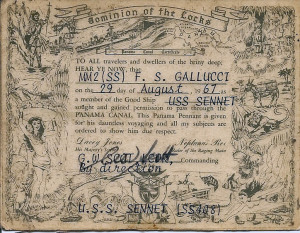 Dominion of the Locks
Panama Canal
TO ALL travelers and dwellers of the briny deep:
HEAR YE NOW, that
MM2(SS) F. S. GALLUCCI
on the 29 day of August 1967
as a member of the Good Ship USS SENNET
sought and gained permission to pass through the
PANAMA CANAL. This Panama Pennant is given
for his dauntless voyaging and all my subjects are
ordered to show him due respect.
Davey Jones Neptunus Rex
His Majesty's Ruler of the Raging Main
Commanding
By direction
(U.S.S. SENNET (SS408)